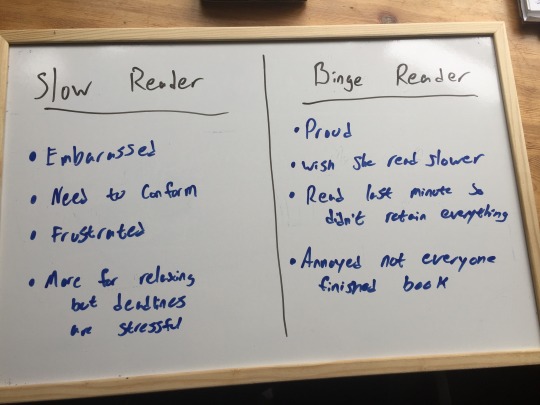 Slow Reader
• Embarassed
• Need to Conform
• Frustrated
• More for relaxing
but deadlines
are stressful
Binge Reader
• Proud
• wish she read slower
• Read last minute so
didn't retain everything
• Annoyed not everyone
finished book